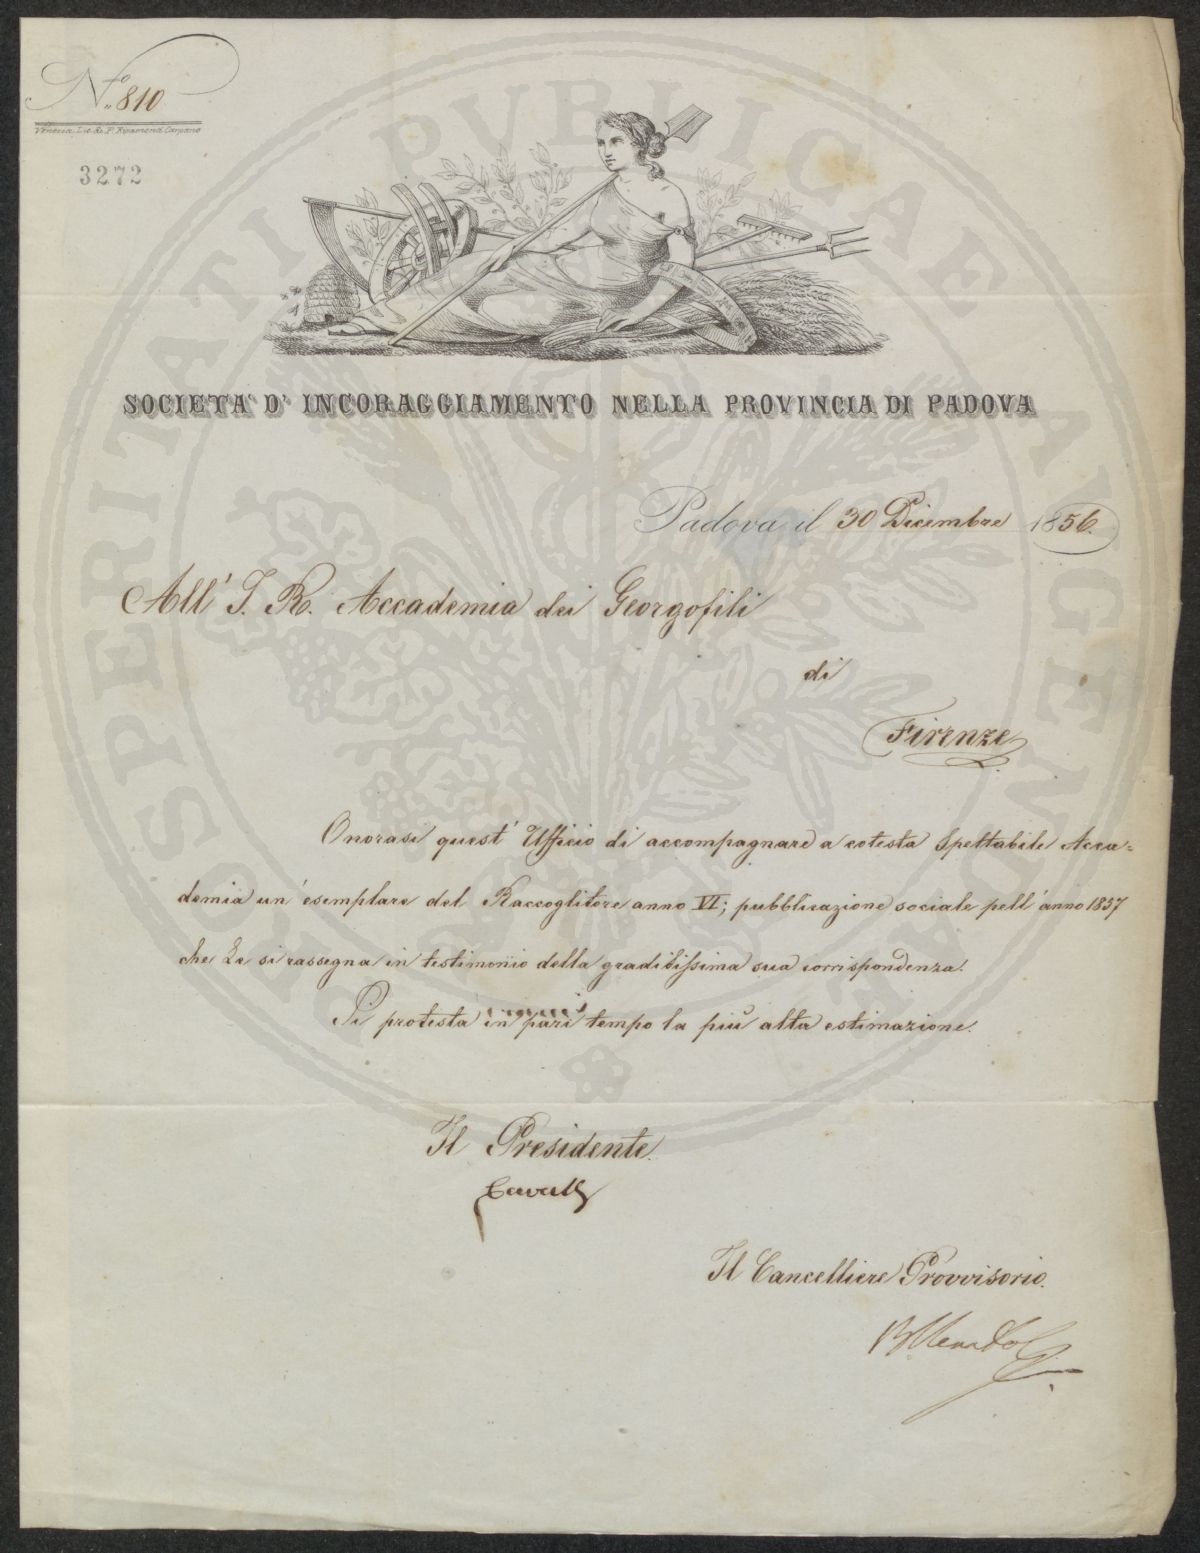 N.o 810
Venezia Lit.
3272
SOCIETA' D' INCORAGGIAMENTO NELLA PROVINCIA DI PADOVA
Padova il 30 Dicembre 1856.
All' I. R. Accademia dei Georgofili
di
Firenze
Onorasi quest' Ufficio di accompagnare a cotesta Spettabile Acca=
demia un' esemplare del Raccoglitore anno VI; pubblicazione sociale pell' anno 1857
che Le si rassegna in testimonio della graditissima sua corrispondenza.
Si protesta in pari tempo la più alta estimazione.
Il Presidente.
Cavalli
Il Cancelliere Provvisorio.
PROSPERITATI PVBLICAE AVGENDAE